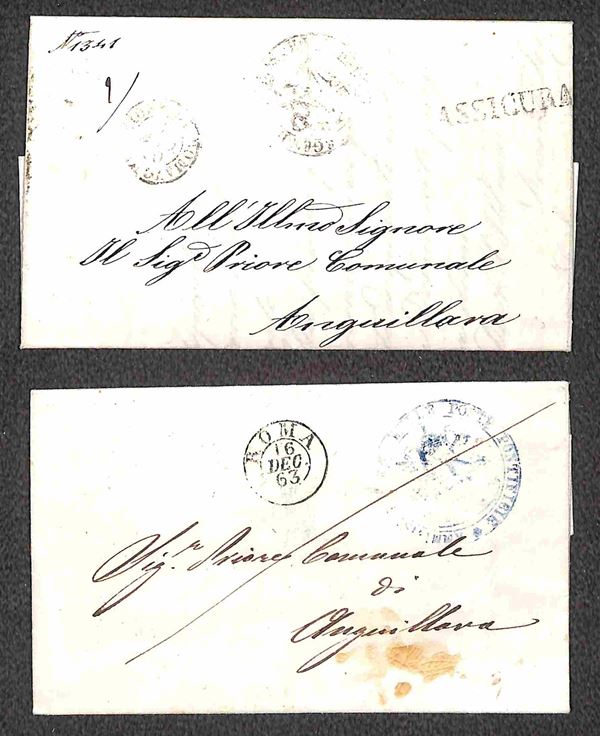 N° 1341
ASSICURA
All'Illmo Signore
Il Sigr Priore Comunale
Anguillara
ROMA
16
DEC
63
POSTE PONTIFICIE
Sig.re Priore Comunale
di
Anguillara